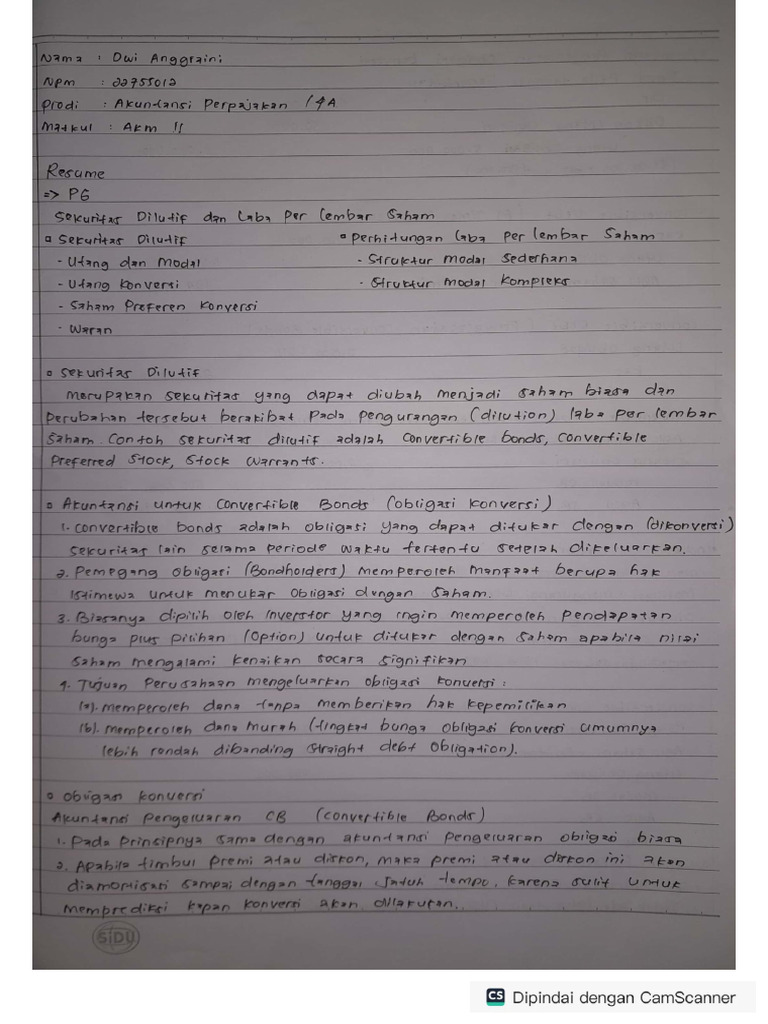 Nama : Dwi Anggraini
Npm : 22755012
Prodi : Akuntansi Perpajakan / 4A
Matkul : AKM II
Resume
=> P6
Sekuritas Dilutif dan Laba Per Lembar Saham
Sekuritas Dilutif
- Utang dan Modal
- Utang Konversi
- Saham Preferen Konversi
- Waran
Perhitungan Laba Per lembar Saham
- Struktur Modal Sederhana
- Struktur Modal Kompleks
Sekuritas Dilutif
Merupakan sekuritas yang dapat diubah menjadi saham biasa dan
Perubahan tersebut berakibat Pada pengurangan (dilution) laba per lembar
Saham. Contoh sekuritas dilutif adalah Convertible bonds, Convertible
Preferred Stock, Stock Warrants.
Akuntansi untuk Convertible Bonds (obligasi konversi)
1. Convertible bonds adalah obligasi yang dapat ditukar dengan (dikonversi)
sekuritas lain selama periode waktu tertentu setelah dikeluarkan.
2. Pemegang obligasi (Bondholders) memperoleh manfaat berupa hak
istimewa untuk menukar obligasi dengan saham.
3. Biasanya dipilih oleh Inverstor yang ingin memperoleh Pendapatan
bunga plus pilihan (Option) untuk ditukar dengan saham apabila nilai
saham mengalami kenaikan secara signifikan
4. Tujuan Perusahaan mengeluarkan obligasi konversi :
(a). memperoleh dana tanpa memberikan hak kepemilikan
(b). memperoleh dana murah (tingkat bunga obligasi konversi umumnya
lebih rendah dibanding straight debt obligation).
Obligasi konversi
Akuntansi Pengeluaran CB (Convertible Bonds)
1. Pada prinsipnya sama dengan akuntansi pengeluaran obligasi biasa
2. Apabila timbul premi atau diskon, maka premi atau diskon ini akan
diamortisasi sampai dengan tanggal jatuh tempo, karena sulit untuk
memprediksi kapan konversi akan dilakukan.
SiDU
CS Dipindai dengan CamScanner